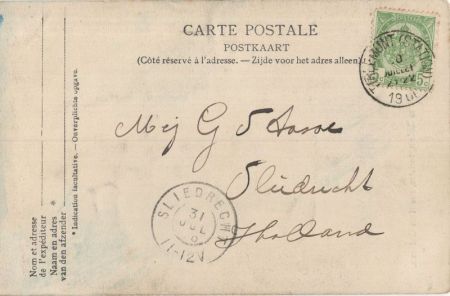 CARTE POSTALE
POSTKAART
(Côté réservé à l'adresse. — Zijde voor het adres alleen.)
TIRLEMONT (STATION)
JUILLET
Mej G
Sliedrecht
Holland
SLIEDRECHT
31
JUL
11-12V
Nom et adresse
de l'expéditeur *
Naam en adres *
van den afzender
* Indication facultative. — Onverplichte opgave.